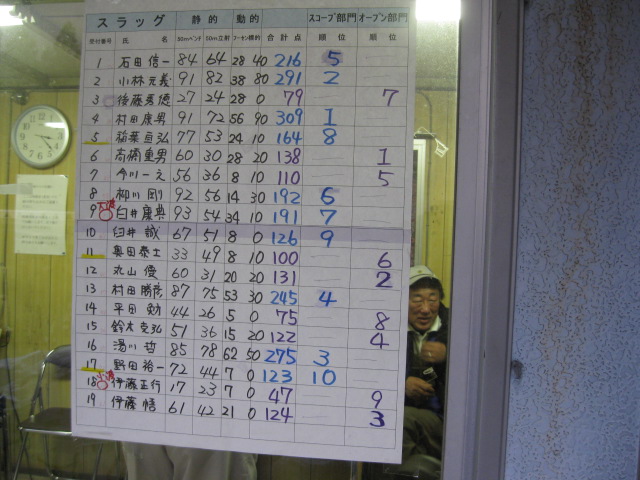 スラッグ 静的 動的 スコープ部門 オープン部門
受付番号 氏 名 50mヘンド 50m立射 合計点 順 位 順 位
1 石田信一 84 64 28 40 216 5
2 小林元義 91 82 38 80 291 2
3 後藤秀徳 27 24 28 0 79 7
4 村田康男 91 72 56 90 309 1
5 稲葉亘弘 77 53 24 10 164 8
6 高橋重男 60 30 28 20 138 1
7 今川一之 56 36 8 10 110 5
8 柳川剛 92 56 14 30 192 6
9 臼井康典 93 54 34 10 191 7
10 臼井誠 67 51 8 0 126 9
11 奥田泰士 33 49 8 10 100 6
12 丸山優 60 31 20 20 131 2
13 村田勝彦 87 75 53 30 245 4
14 平田効 44 26 5 0 75 8
15 鈴木克弘 51 36 15 20 122 4
16 湯川哲 85 78 62 50 275 3
17 野田裕一 72 44 7 0 123 10
18 伊藤正行 17 23 7 0 47 9
19 伊藤悟 61 42 21 0 124 3